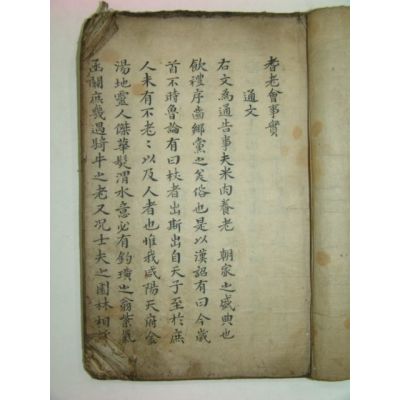 耆老會事實
通文
右文為通告事夫米肉養老 朝家之盛典也
飲禮序齒鄉黨之美俗也是以漢詔有曰今歲
首不時魯論有曰杖者出斯出自天子至於庶
人未有不老〻以及人者也惟我咸陽天府金
湯地靈人傑華髮渭水意必有釣璜之翁紫氣
函關庶幾過騎牛之老又况士夫之園林相